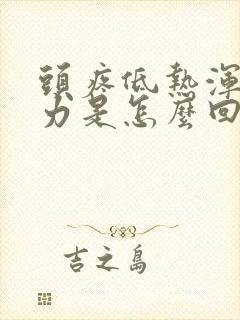 頭疼低熱渾
力是怎麼回
吉之島